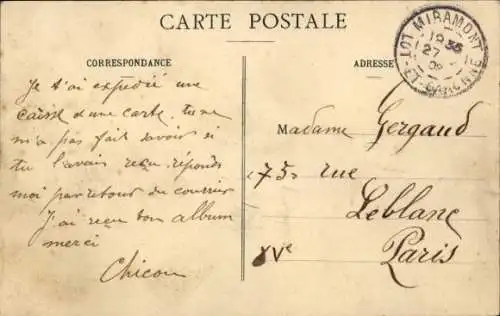 CARTE POSTALE
CORRESPONDANCE
Je t'ai expedié une
caisse d'une carte. tu ne
m'a pas fait savoir si
tu l'avais reçu. réponds
moi par retour du courrier
J'ai reçu ton album
merci
Chicou
ADRESSE
Madame Gergaud
75 rue
Leblanc
Paris
XVe
MIRAMONT
LOT-ET-GARONNE
27